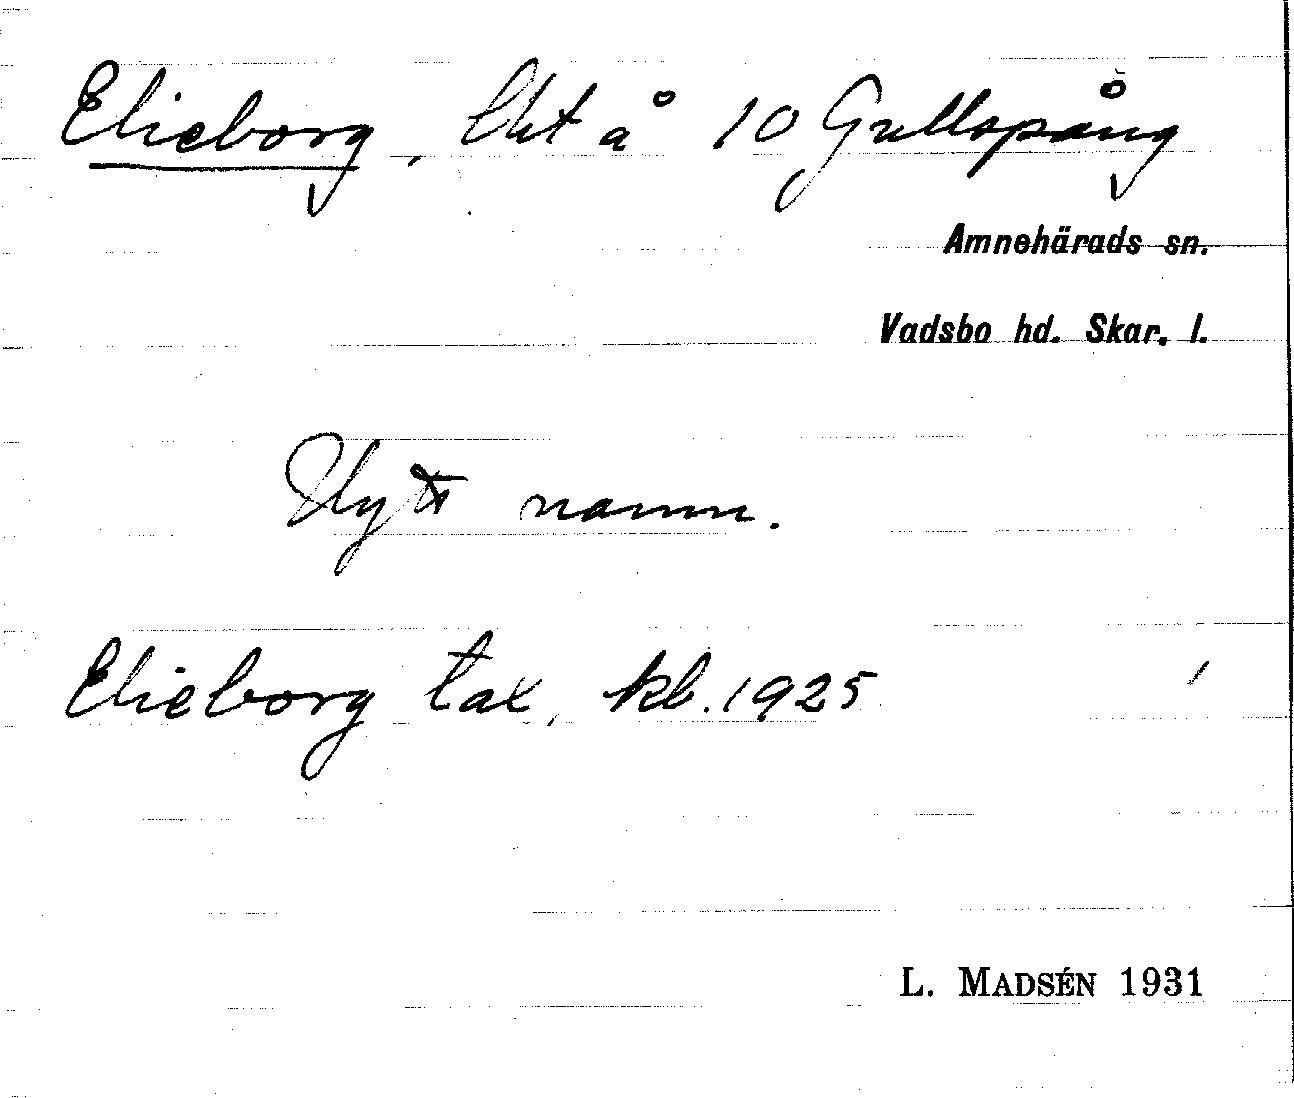 Elieborg, lht å 10 Gullspång
Amnehärads sn.
Vadsbo hd. Skar. l.
Nytt namn.
Elieborg tax, kb. 1925
L. MADSÉN 1931